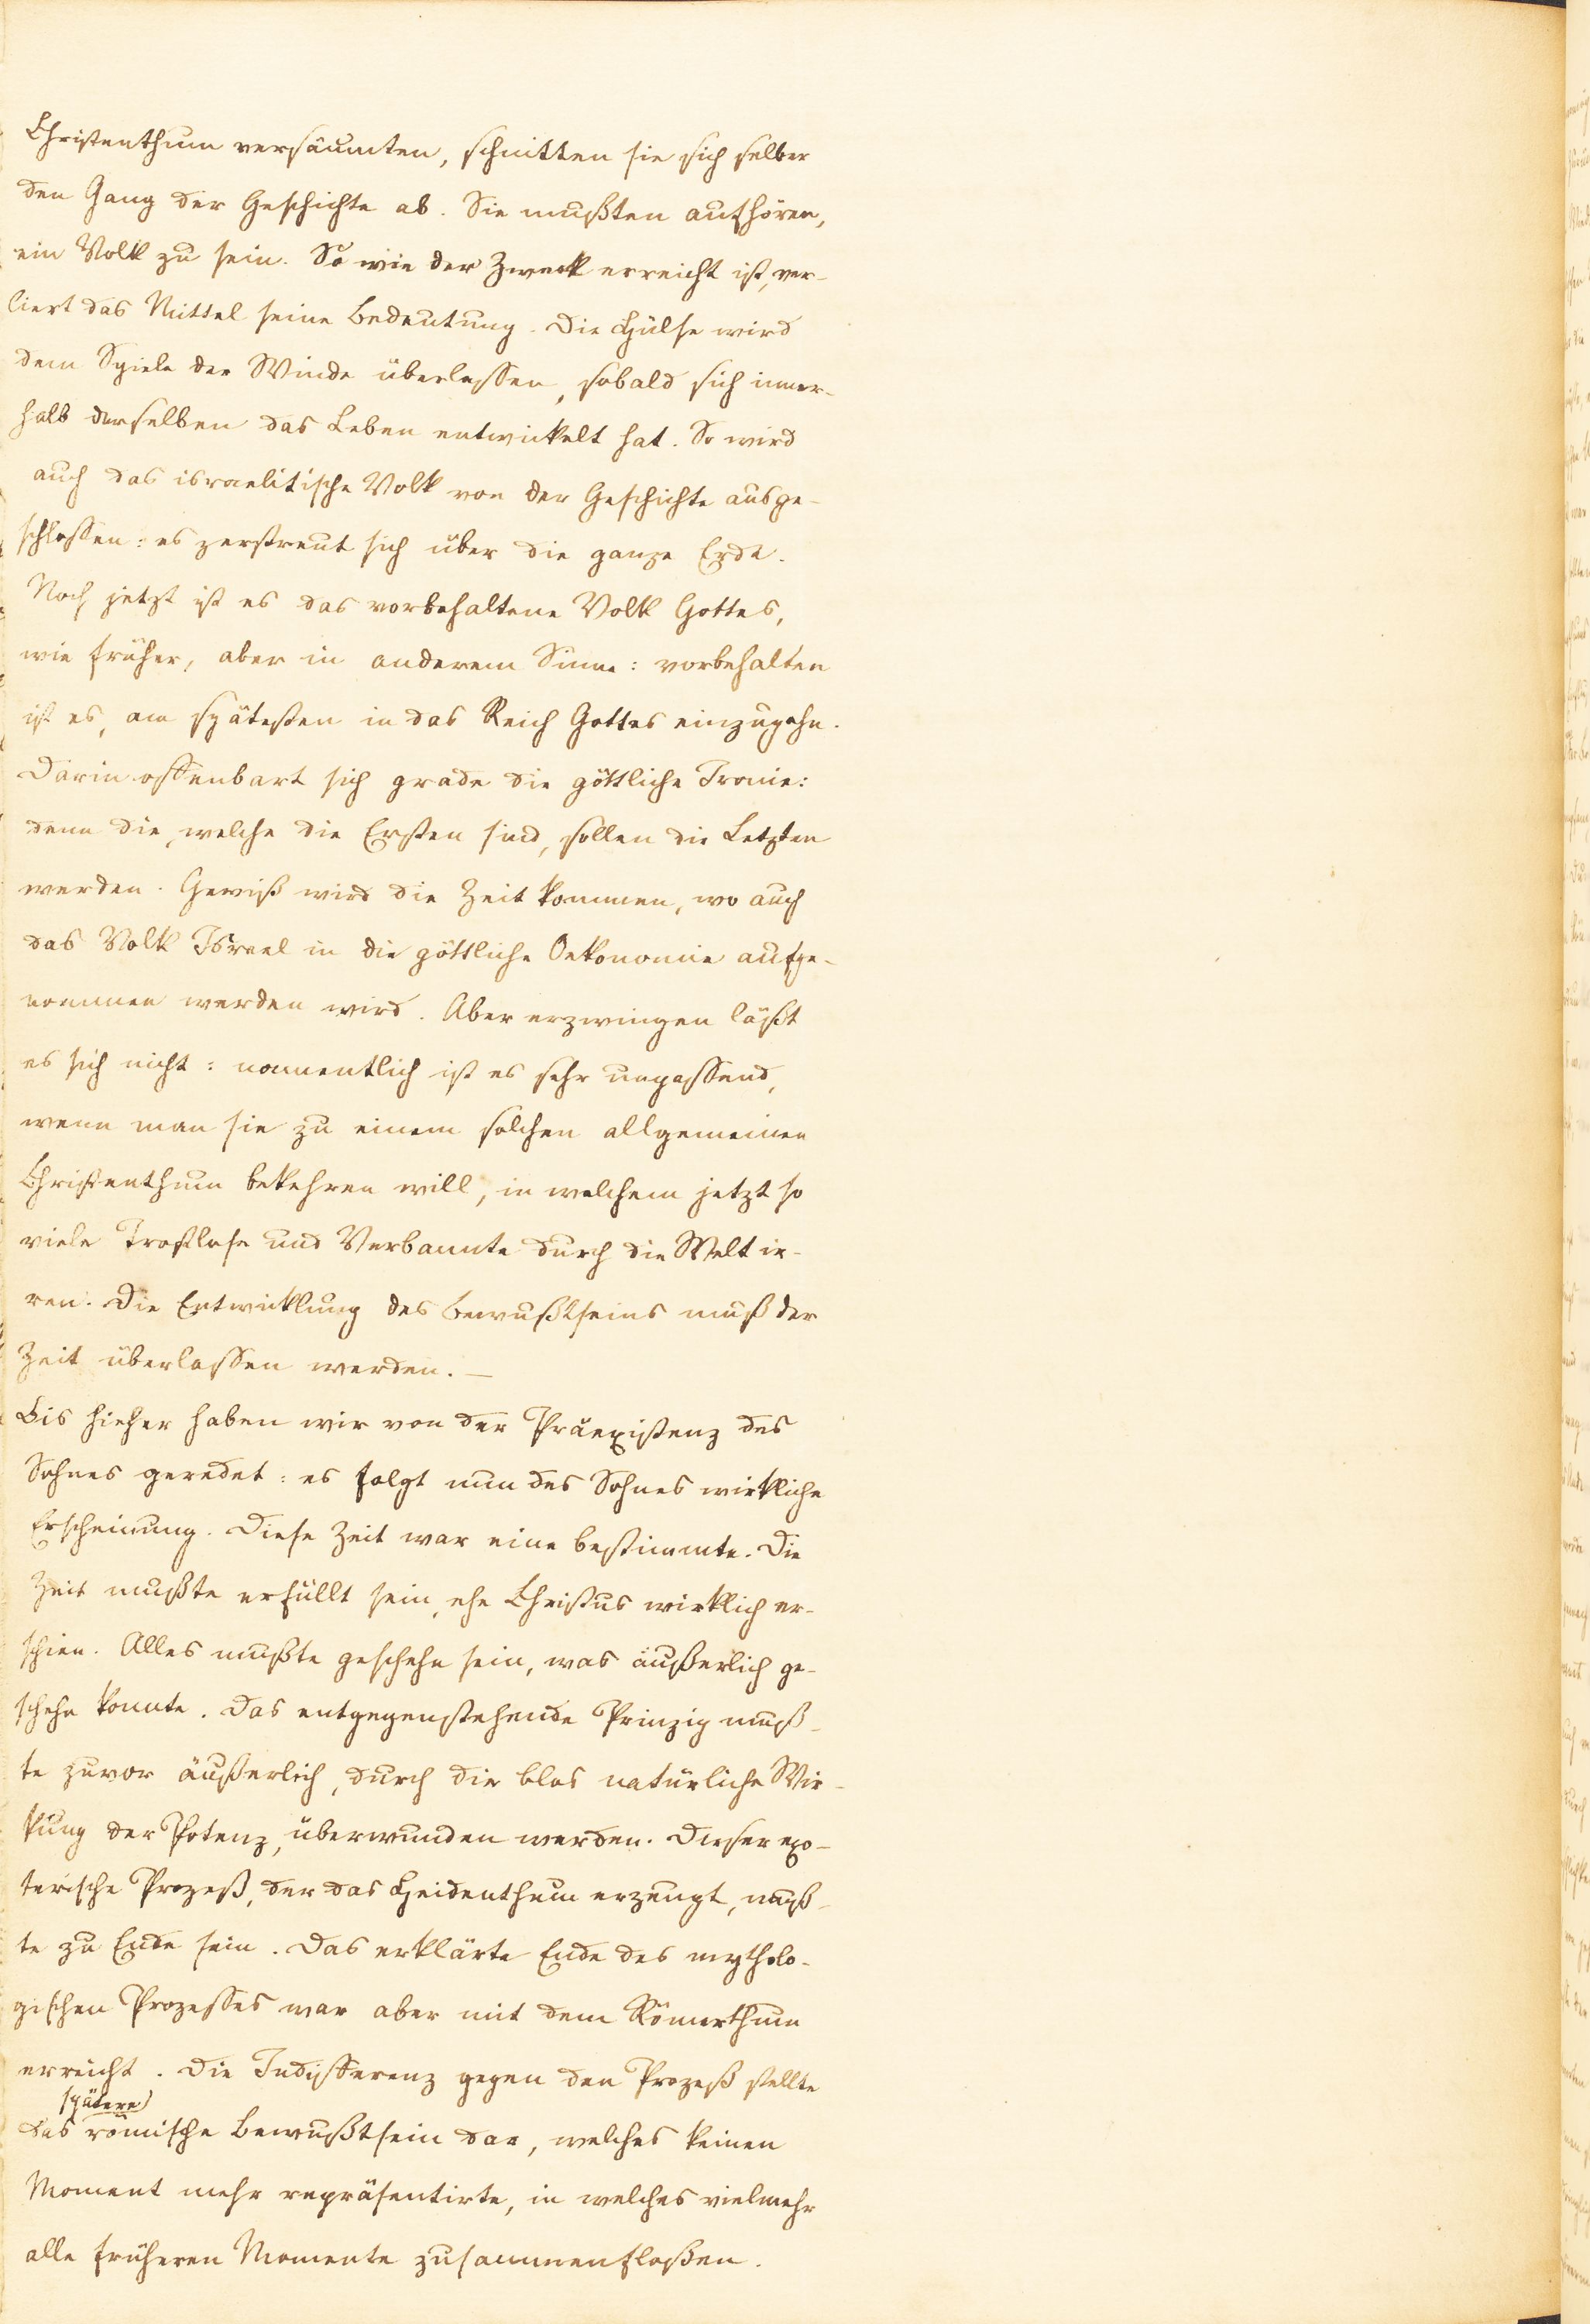 Christenthum versäumten, schnitten sie sich selber
den Gang der Geschichte ab. Sie mußten aufhören,
ein Volk zu sein. So wie der Zweck erreicht ist, ver-
liert das Mittel seine Bedeutung. Die Hülse wird
dem Spiele der Winde überlassen, sobald sich inner-
halb derselben das Leben entwickelt hat. So wird
auch das israelitische Volk von der Geschichte ausge-
schlossen: es zerstreut sich über die ganze Erde.
Noch jetzt ist es das vorbehaltene Volk Gottes,
wie früher, aber in anderem Sinne: vorbehalten
ist es, am spätesten in das Reich Gottes einzugehn.
Darin offenbart sich grade die göttliche Ironie:
denn die, welche die Ersten sind, sollen die Letzten
werden. Gewiß wird die Zeit kommen, wo auch
das Volk Israel in die göttliche Oekonomie aufge-
nommen werden wird. Aber erzwingen läßt
es sich nicht: namentlich ist es sehr unpassend,
wenn man sie zu einem solchen allgemeinen
Christenthum bekehren will, in welchem jetzt so
viele Trostlose und Verbannte durch die Welt ir-
ren. Die Entwicklung des Bewußtseins muß der
Zeit überlassen werden. —
Bis hieher haben wir von der Präexistenz des
Sohnes geredet: es folgt nun des Sohnes wirkliche
Erscheinung. Diese Zeit war eine bestimmte. Die
Zeit mußte erfüllt sein, ehe Christus wirklich er-
schien. Alles mußte geschehn sein, was äußerlich ge-
schehn konnte. Das entgegenstehende Prinzip muß-
te zuvor äußerlich, durch die blos natürliche Wir-
kung der Potenz, überwunden werden. Dieser exo-
terische Prozeß, der das Heidenthum erzeugt, muß-
te zu Ende sein. Das erklärte Ende des mytholo-
gischen Prozesses war aber mit dem Römerthum
erreicht. Die Indifferenz gegen den Prozeß stellte
spätere
das römische Bewußtsein dar, welches keinen
Moment mehr repräsentirte, in welches vielmehr
alle früheren Momente zusammenfloßen.